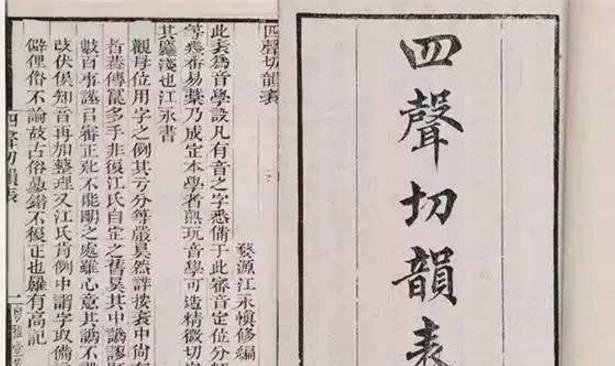 四聲切韻表
四聲切韻表
婺源江永慎修編
此表為音學設凡有音之字悉備于此審音定位分
等幾番易藁乃成定本學者熟玩音學可造精微切
其廳淺也江永書
觀母位用字之例其亏分等嚴具然詳按表中尚有
者卷傳寫多手非復江氏自定之舊其中譌謬
數百事謹
審正死不能明之處雖心意其譌不
改伏俟知音再加整理又江氏肯例中謂字取備
僻俚俗不論故古俗
錯不復正也羅有高記
四聲切韻表
一
雅堂